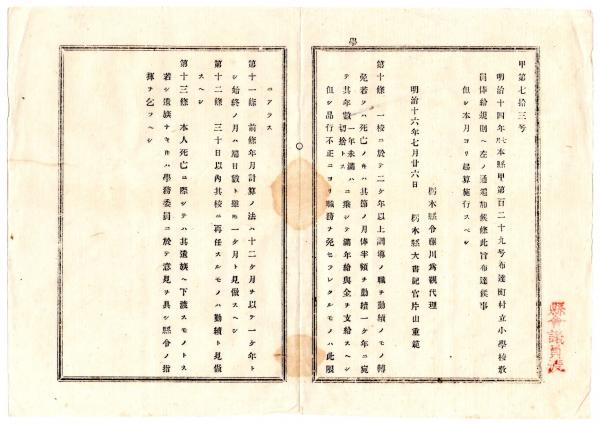 甲第七拾三号
明治十四年七月本縣甲第百二十九号布達町村立小學校教
員俸給規則ヘ左ノ通追加候條此旨布達候事
但シ本月ヨリ起算施行スベシ
栃木縣令藤川爲親代理
明治十六年七月廿六日 栃木縣大書記官片山重範
第十條 一校ニ於テ二ケ年以上訓導ノ職ヲ勤績ノモノ轉
免若クハ死亡ノキハ其節ノ月俸半額ヲ勤績一ケ年ニ宛
テ其年數一年未滿ハ切捨トスニ乘シテ滿年給與金ヲ支給スヘシ
但シ品行不正ニヨリ職務ヲ免セラレタルモノハ此限
學
ニアラス
第十一條 前條年月計算ノ法ハ十二ケ月ヲ以テ一ケ年ト
シ始終ノ月ハ屆日數ト雖モ一ケ月ト見傚スヘシ
第十二條 三十日以內其校ニ再任スルモノハ勤績ト見傚
スヘシ
第十三條 本人死亡ニ際シテハ其遺族ヘ下渡スモノトス
若シ遺族ナキキハ學務委員ニ於テ意見ヲ具シ縣令ノ指
揮ヲ乞フヘシ
縣會議員